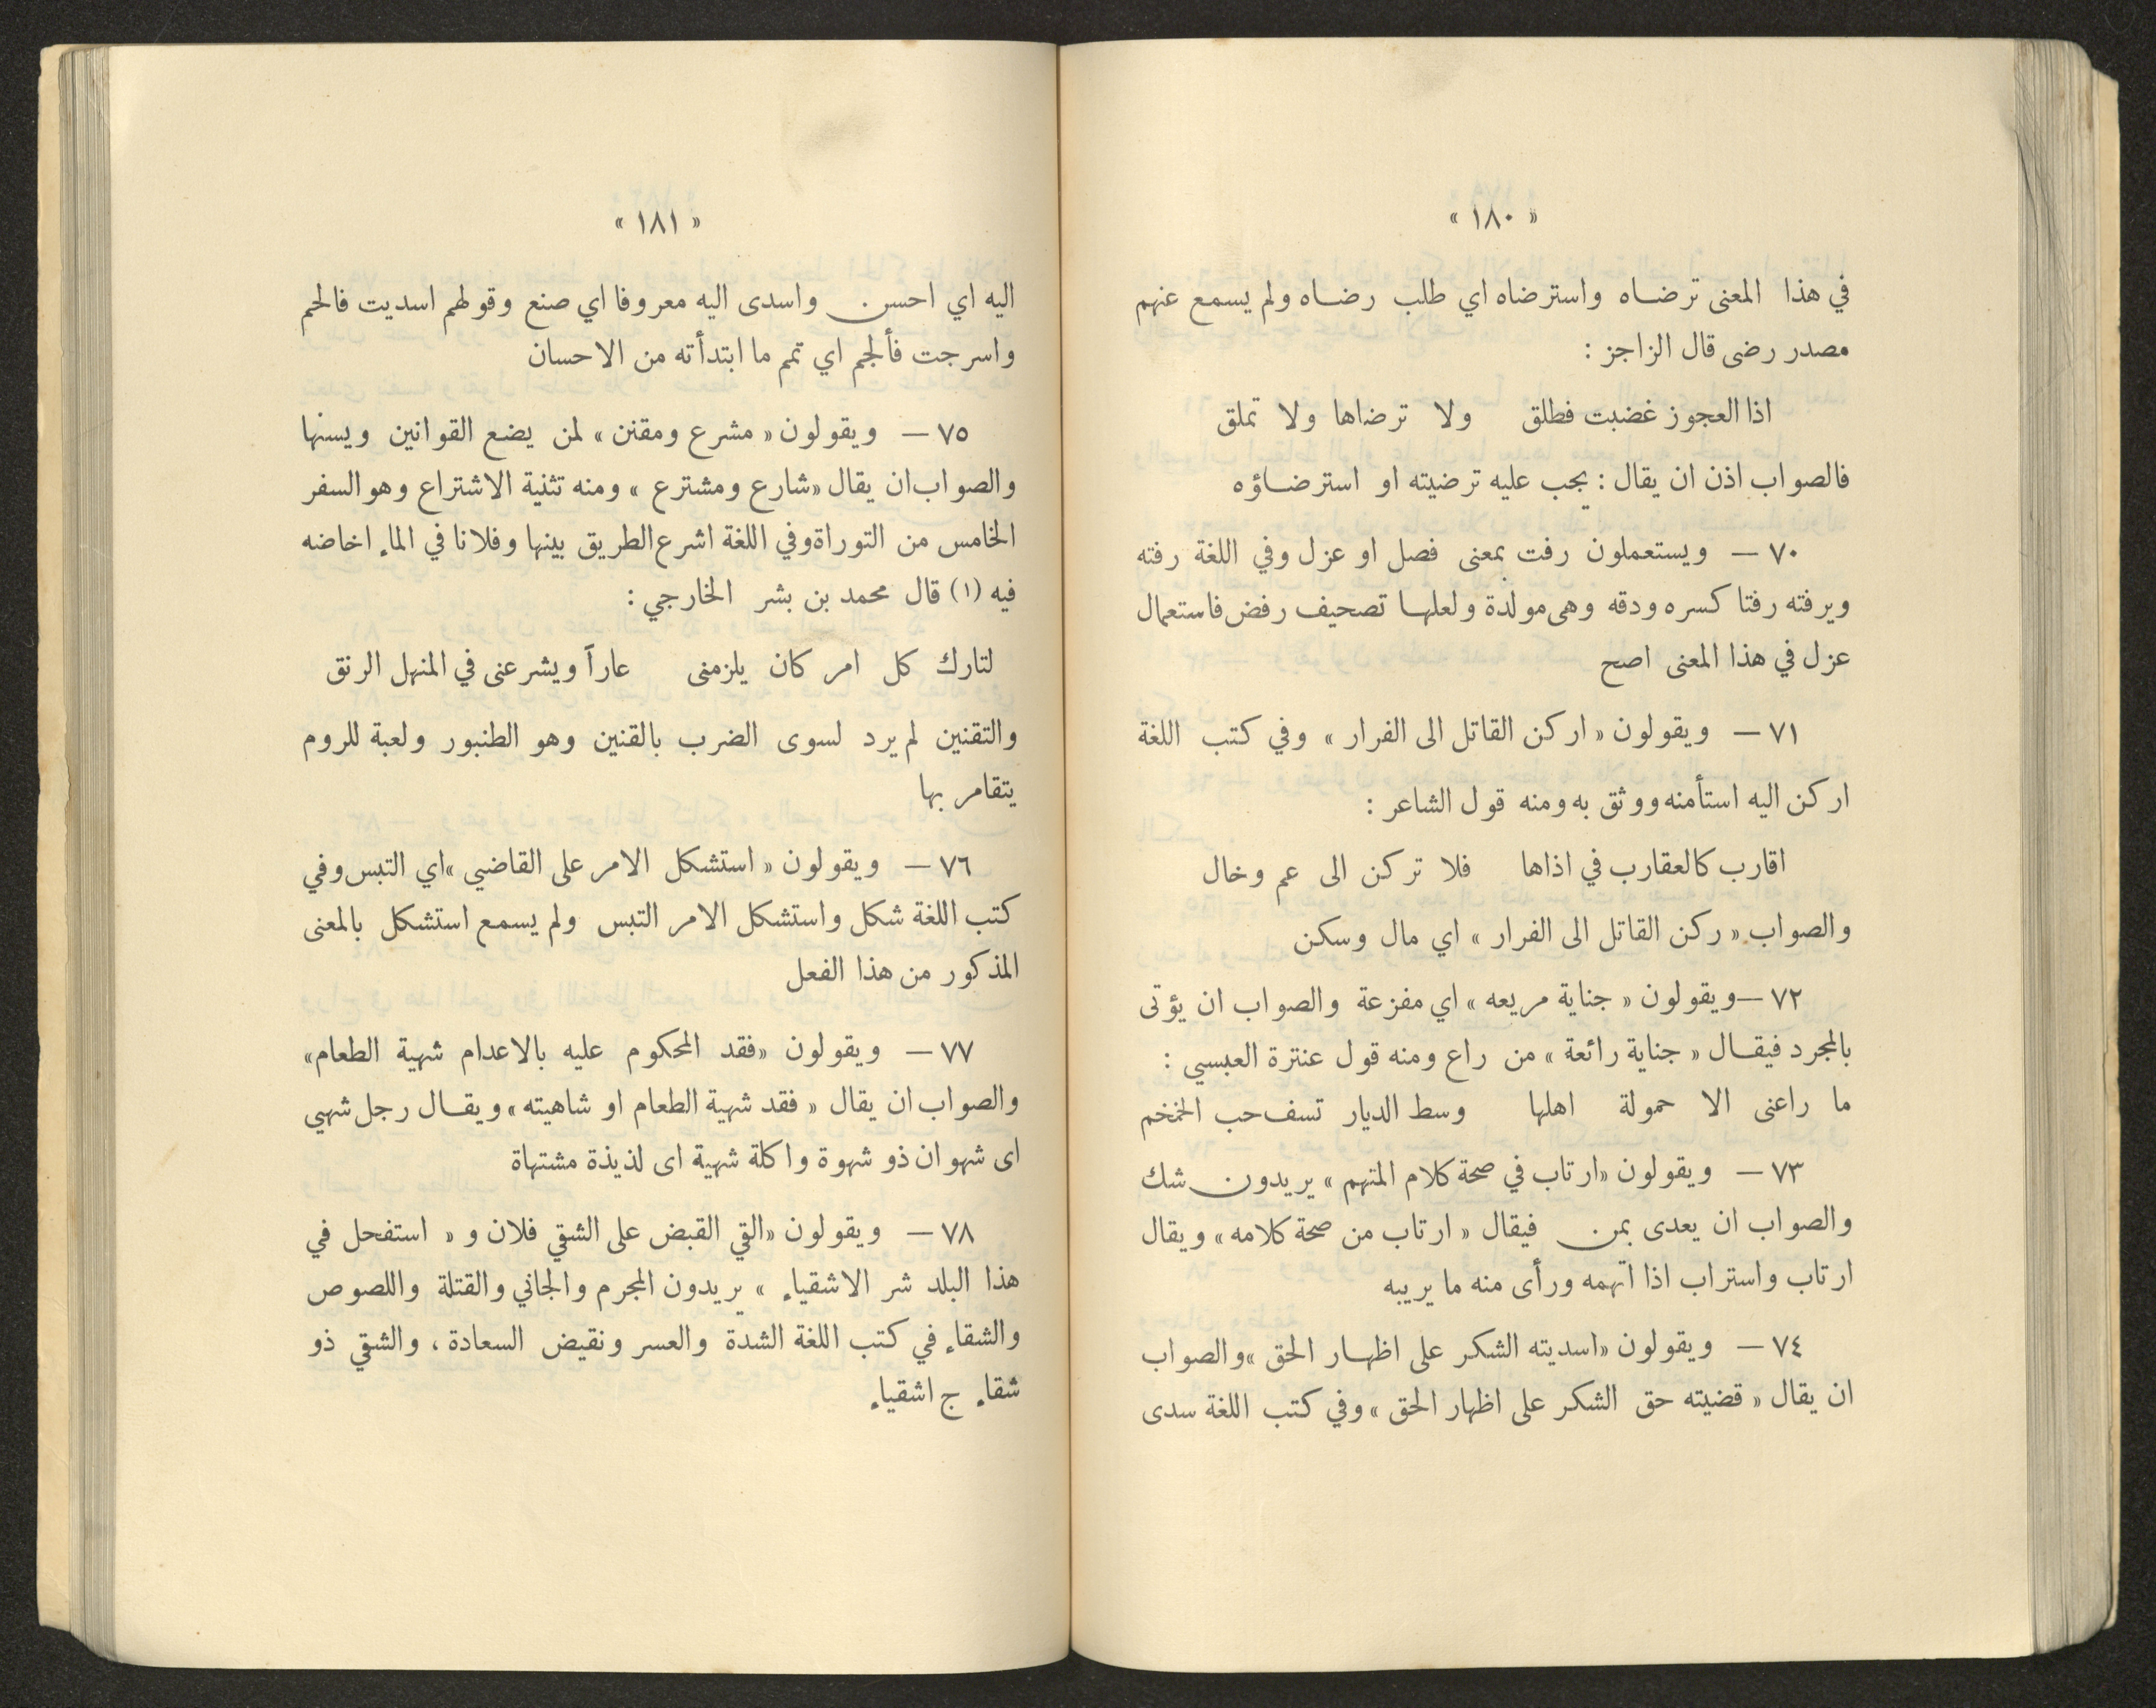 « ١٨٠ »
في هذا المعنى ترضاه واسترضاه اي طلب رضاه ولم يسمع عنهم
مصدر رضى قال الراجز :
اذا العجوز غضبت فطلق ولا ترضاها ولا تملق
فالصواب اذن ان يقال : يجب عليه ترضيته او استرضاؤه
٧٠ — ويستعملون رفت بمعنى فصل او عزل وفي اللغة رفته
ويرفته رفتا كسره ودقه وهى مولدة ولعلها تصحيف رفض فاستعمال
عزل في هذا المعنى اصح
٧١ — ويقولون « اركن القاتل الى الفرار » وفي كتب اللغة
اركن اليه استأمنه ووثق به ومنه قول الشاعر :
اقارب كالعقارب في اذاها فلا تركن الى عم وخال
والصواب « ركن القاتل الى الفرار » اي مال وسكن
٧٢ — ويقولون « جناية مريعه » اي مفزعة والصواب ان يؤتى
بالمجرد فيقال « جناية رائعة » من راع ومنه قول عنترة العبسي :
ما راعنى الا حمولة اهلها وسط الديار تسف حب الخمخم
٧٣ — ويقولون « ارتاب في صحة كلام المتهم » يريدون شك
والصواب ان يعدى بمن فيقال « ارتاب من صحة كلامه » ويقال
ارتاب واستراب اذا اتهمه ورأى منه ما يريبه
٧٤ — ويقولون « اسديته الشكر على اظهار الحق » والصواب
ان يقال « قضيته حق الشكر على اظهار الحق » وفي كتب اللغة سدى
« ١٨١ »
اليه اي احسن . واسدى اليه معروفا اي صنع وقولهم اسديت فالحم
واسرجت فألجم اي تمم ما ابتدأته من الاحسان
٧٥ — ويقولون « مشرع ومقنن » لمن يضع القوانين ويسنها
والصواب ان يقال « شارع ومشترع » ومنه تثنية الاشتراع وهو السفر
الخامس من التوراة وفي اللغة اشرع الطريق بينها وفلانا في الماء اخاضه
فيه (١) قال محمد بن بشر الخارجي :
لتارك كل امر كان يلزمنى عاراً ويشرعنى في المنهل الرنق
والتقنين لم يرد لسوى الضرب بالقنين وهو الطنبور ولعبة للروم
يتقامر بها
٧٦ — ويقولون « استشكل الامر على القاضي » اي التبس وفي
كتب اللغة شكل واستشكل الامر التبس ولم يسمع استشكل بالمعنى
المذكور من هذا الفعل
٧٧ — ويقولون « فقد المحكوم عليه بالاعدام شهية الطعام »
والصواب ان يقال « فقد شهية الطعام او شاهيته » ويقال رجل شهي
اى شهوان ذو شهوة واكلة شهية اى لذيذة مشتهاة
٧٨ — ويقولون « القي القبض على الشقي فلان و « استفحل في
هذا البلد شر الاشقياء » يريدون المجرم والجاني والقتلة واللصوص
والشقاء في كتب اللغة الشدة والعسر ونقيض السعادة ، والشقي ذو
شقاء ج اشقياء